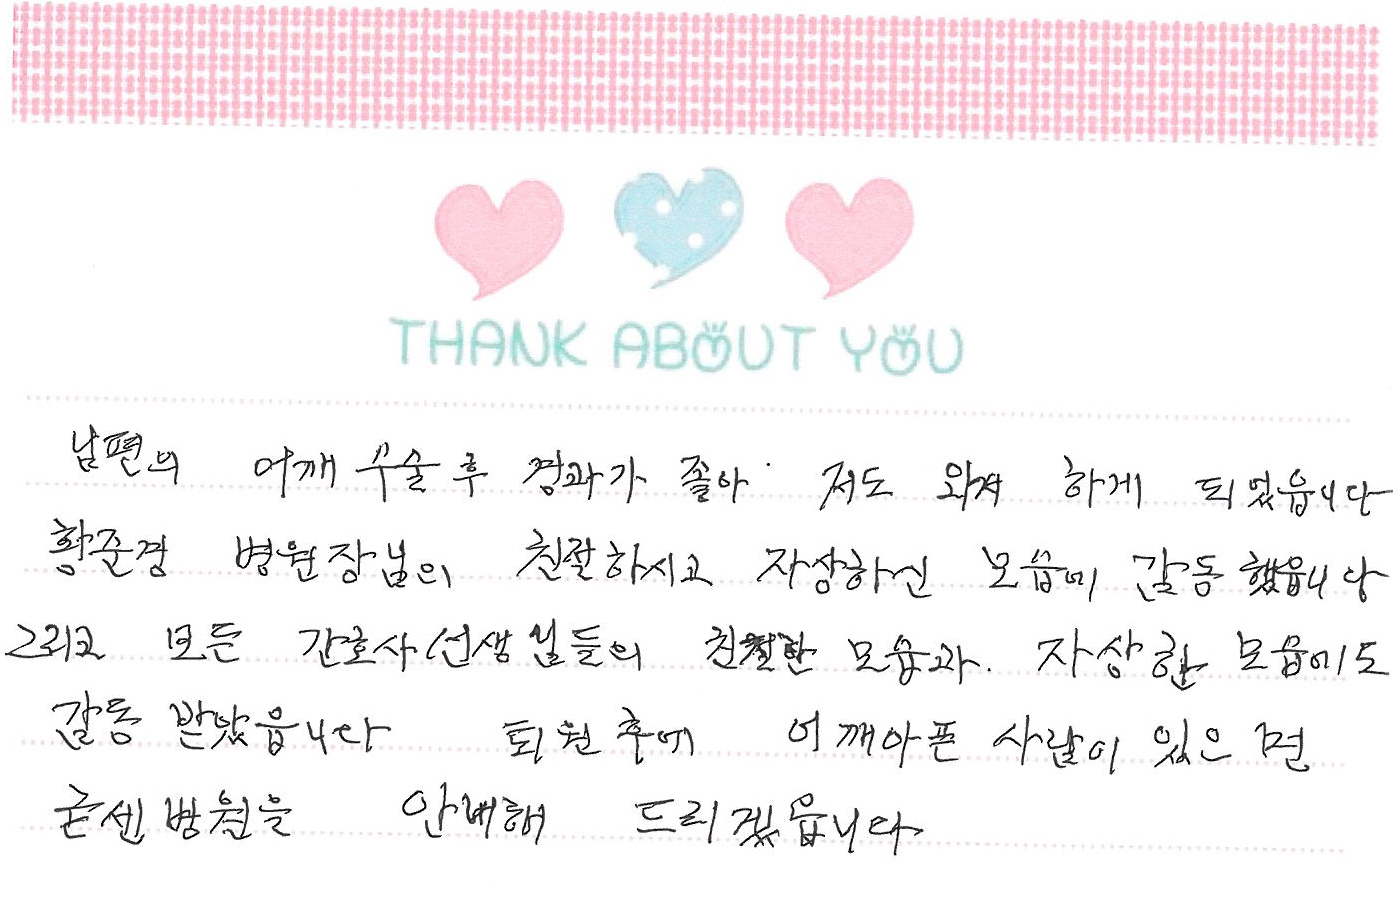 THANK ABOUT YOU
남편의 어깨 수술 후 경과가 좋아 저도 와서 하게 되었읍니다
황준경 병원장님의 친절하시고 자상하신 모습에 감동 했읍니다
그리고 모든 간호사선생님들의 친절한 모습과. 자상한 모습에도
감동 받았읍니다 퇴원 후에 어깨아픈 사람이 있으면
굳센병원을 안내해 드리겠읍니다